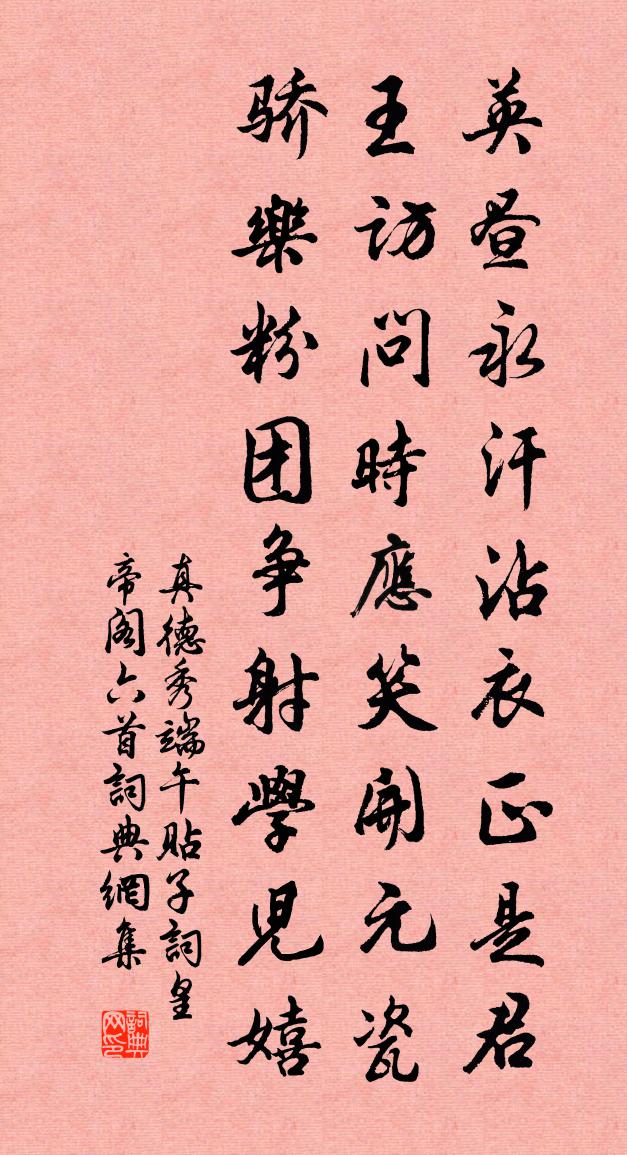 英昼永汗沾衣正是君
王访問時應笑開元瓷
骄樂粉团争射學児嬉
真德秀端午貼子詞皇
帝阁六首詞典網集
詞典网印